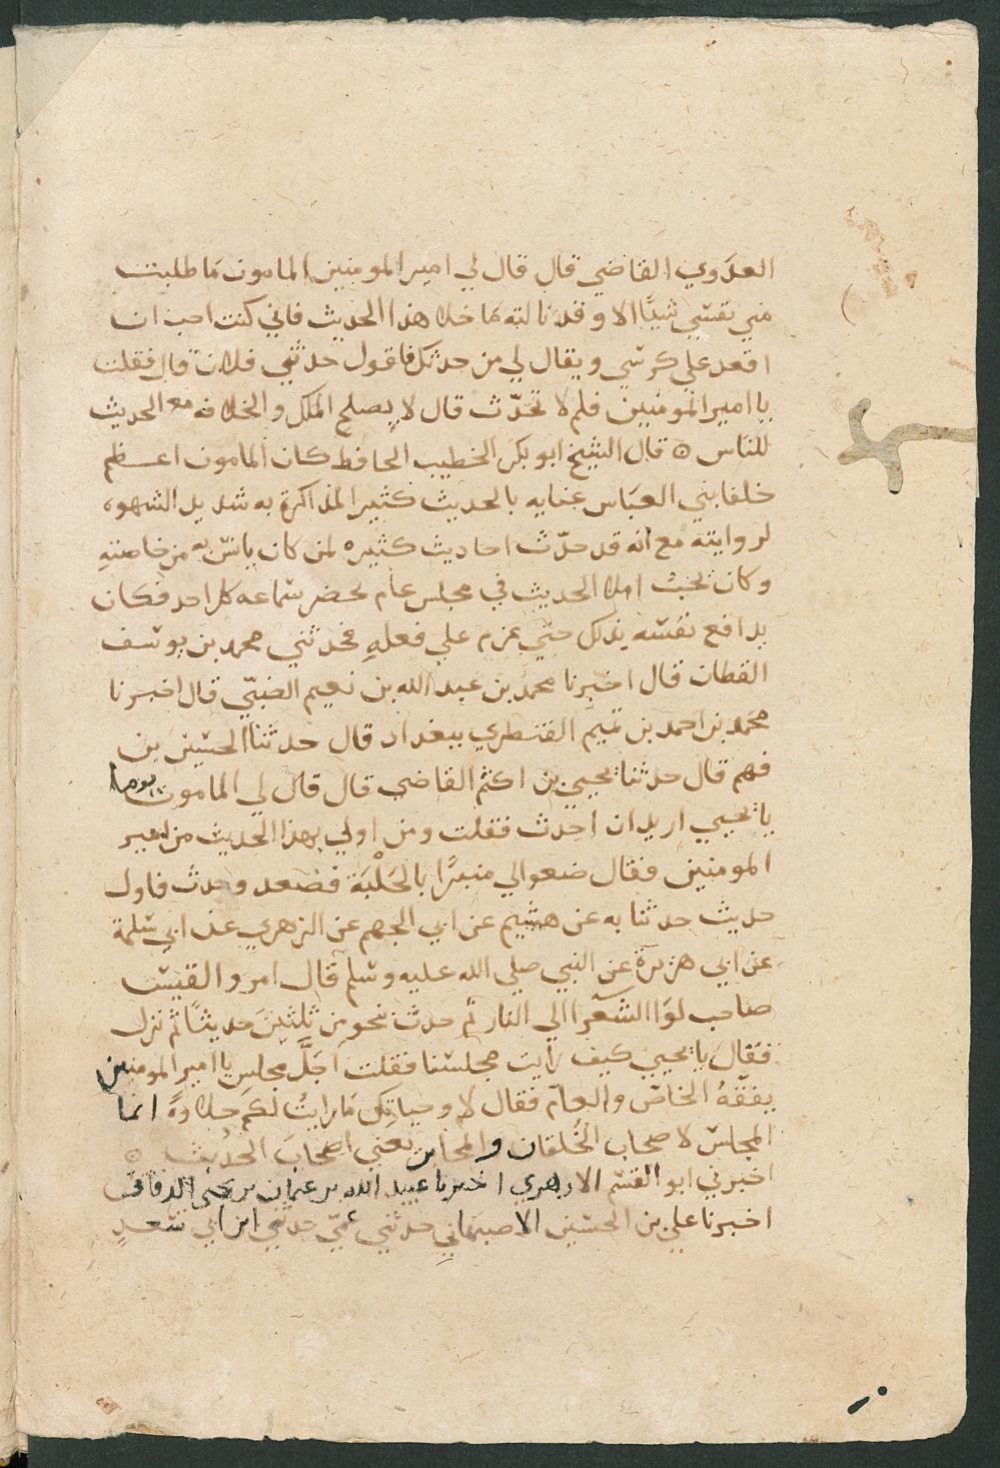 العدوي القاضي قال قال لي امير المومنين المامون ما طلبت
مني نفسي شيئًا الا وقد نالته ما خلا هذا الحديث فاني كنت احب ان
اقعد علي كرسي ويقال لي من حدثك فاقول حدثني فلان قال فقلت
يا امير المومنين فلم لا تحدّث قال لا يصلح الملك والخلافه مع الحديث
للناس ٥ قال الشيخ ابو بكر الخطيب الحافظ كان المامون اعظم
خلفا بني العباس عنايه بالحديث كثير المذاكرة به شديد الشهوه
لروايته مع انه قد حدّث احاديث كثيره لمن كان يانس به من خاصته
وكان يحب املا الحديث في مجلس عام يحضر سماعه كل احد فكان
يدافع نفسه بذلك حتي عزم علي فعله فحدثني محمد بن يوسف
القطان قال اخبرنا محمد بن عبد الله بن نعيم الضبّي قال اخبرنا
محمد بن احمد بن تميم القنطري ببغداد قال حدثنا الحسين بن
فهم قال حدثنا يحيي بن اكثم القاضي قال قال لي المامون يوما
يا يحيي اريد ان احدث فقلت ومن اولي بهذا الحديث من امير
المومنين فقال ضعوا لي منبرًا بالحَلْبَة فصعد وحدث فاول
حديث حدثنا به عن هشيم عن ابي الجهم عن الزهري عن ابي سلمة
عن ابي هريرة عن النبي صلي الله عليه وسلم قال امرو القيس
صاحب لوا الشعرا الي النار ثم حدث نحو من ثلثين حديثًا ثم نزل
فقال يا يحيي كيف رايت مجلسنا فقلت اجلَّ مجلس يا امير المومنين
يفقّهُ الخاصّ والعام فقال لا وحياتك ما رايتُ لكم حلاوةً انما
المجلس لاصحاب الخُلقان والمحابر يعني اصحابَ الحديث ٥
اخبرني ابو القسم الازهري اخبرنا عبيد الله بن عثمان بن يحيى الدقاق
اخبرنا علي بن الحسين الاصبهاني حدثني عمّي حدثني ابن ابي سعدٍ